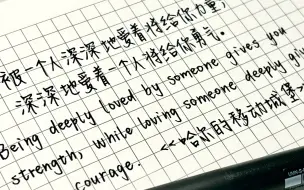 被一个人深深地爱着将给你力量,
深深地爱着一个人将给你勇气。
Being deeply loved by someone gives you
strength, while loving someone deeply gi
courage. 《哈尔的移动城堡》